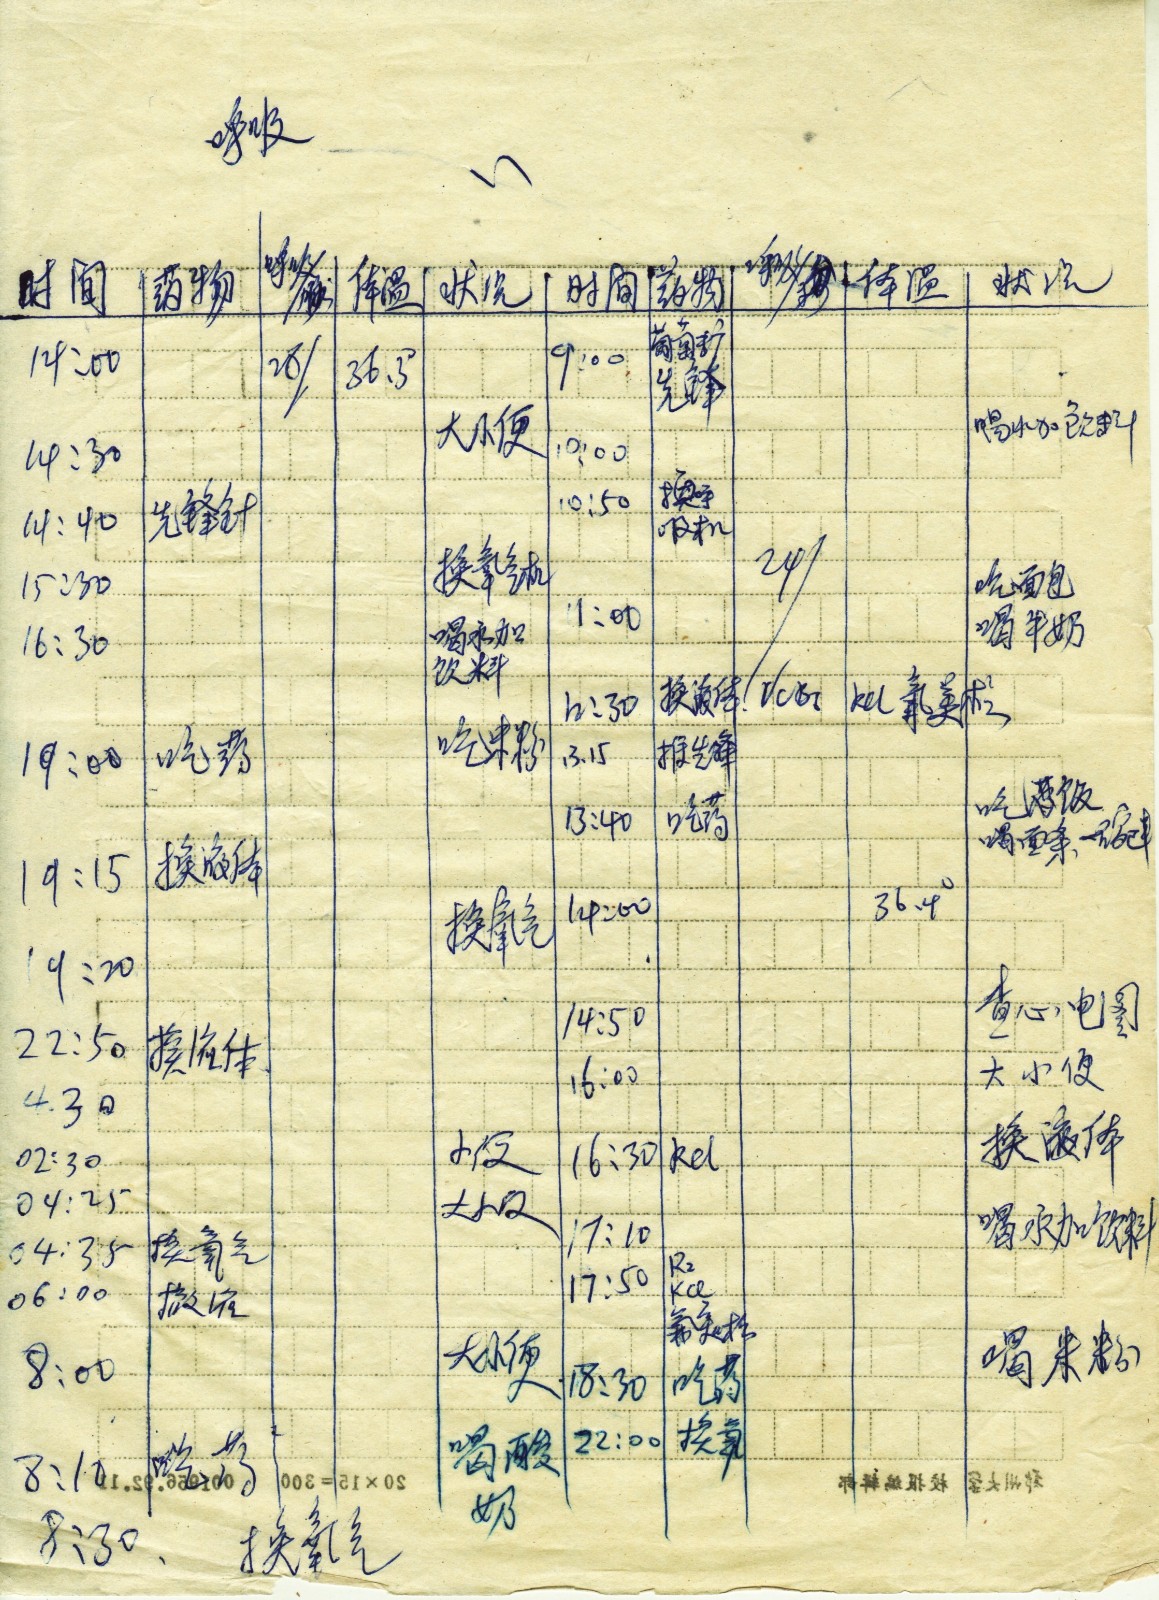 呼吸
时间 药物 呼吸/ 体温 状况 时间 药物 呼吸/ 体温 状况
14:00 28/ 36.5° 9:00 葡萄
先锋
14:30 大小便 10:00 喝水加饮料
14:40 先锋针 10:50 换呼
吸机
15:30 换氧气机 24/ 吃面包
16:30 喝水加 11:00 喝牛奶
饮料
12:30 换液体 kcl 氧
19:00 吃药 吃米粉 13.15 推先锋
13:40 吃药 吃 饭
喝面条
19:15 换液体
换氧气 14:00 36.4°
19:20
14:50 查心电图
22:50 换液体 16:00 大小便
4.3日
02:30 小便 16:30 kcl 换液体
04:25 大小便 17:10 喝水加饮料
04:35 换氧气 17:50 Kcl
06:00 撤液
8:00 大小便 18:30 吃药 喝米粉
8:10 吃药 喝酸 22:00 换氧
奶
20×15=300 郑州大学 校报编辑部
8:30、 换氧气